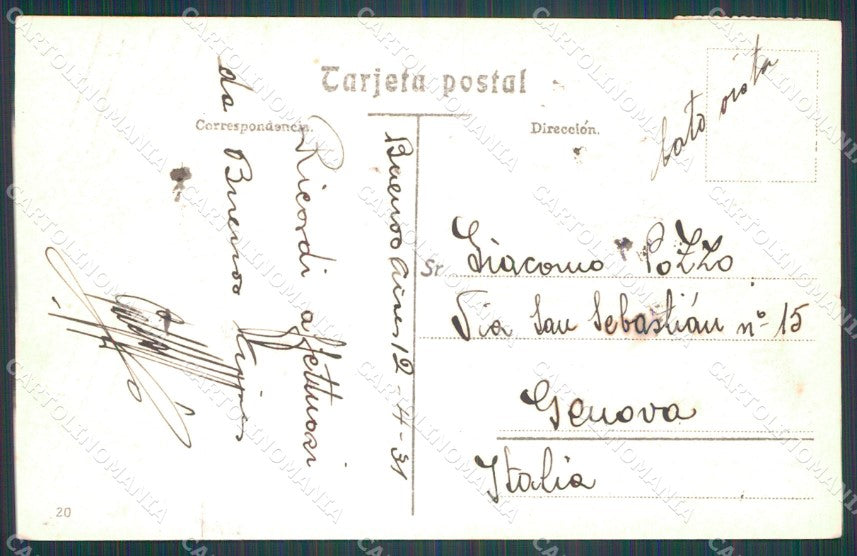 Tarjeta postal
Correspondencia.
Dirección.
lato vista
Buenos Aires 12-4-31
Ricordi affettuosi
da Buenos Aires
Sr. Giacomo Pozzo
Via San Sebastián nº 15
Genova
Italia
20
CARTOLINOMANIA